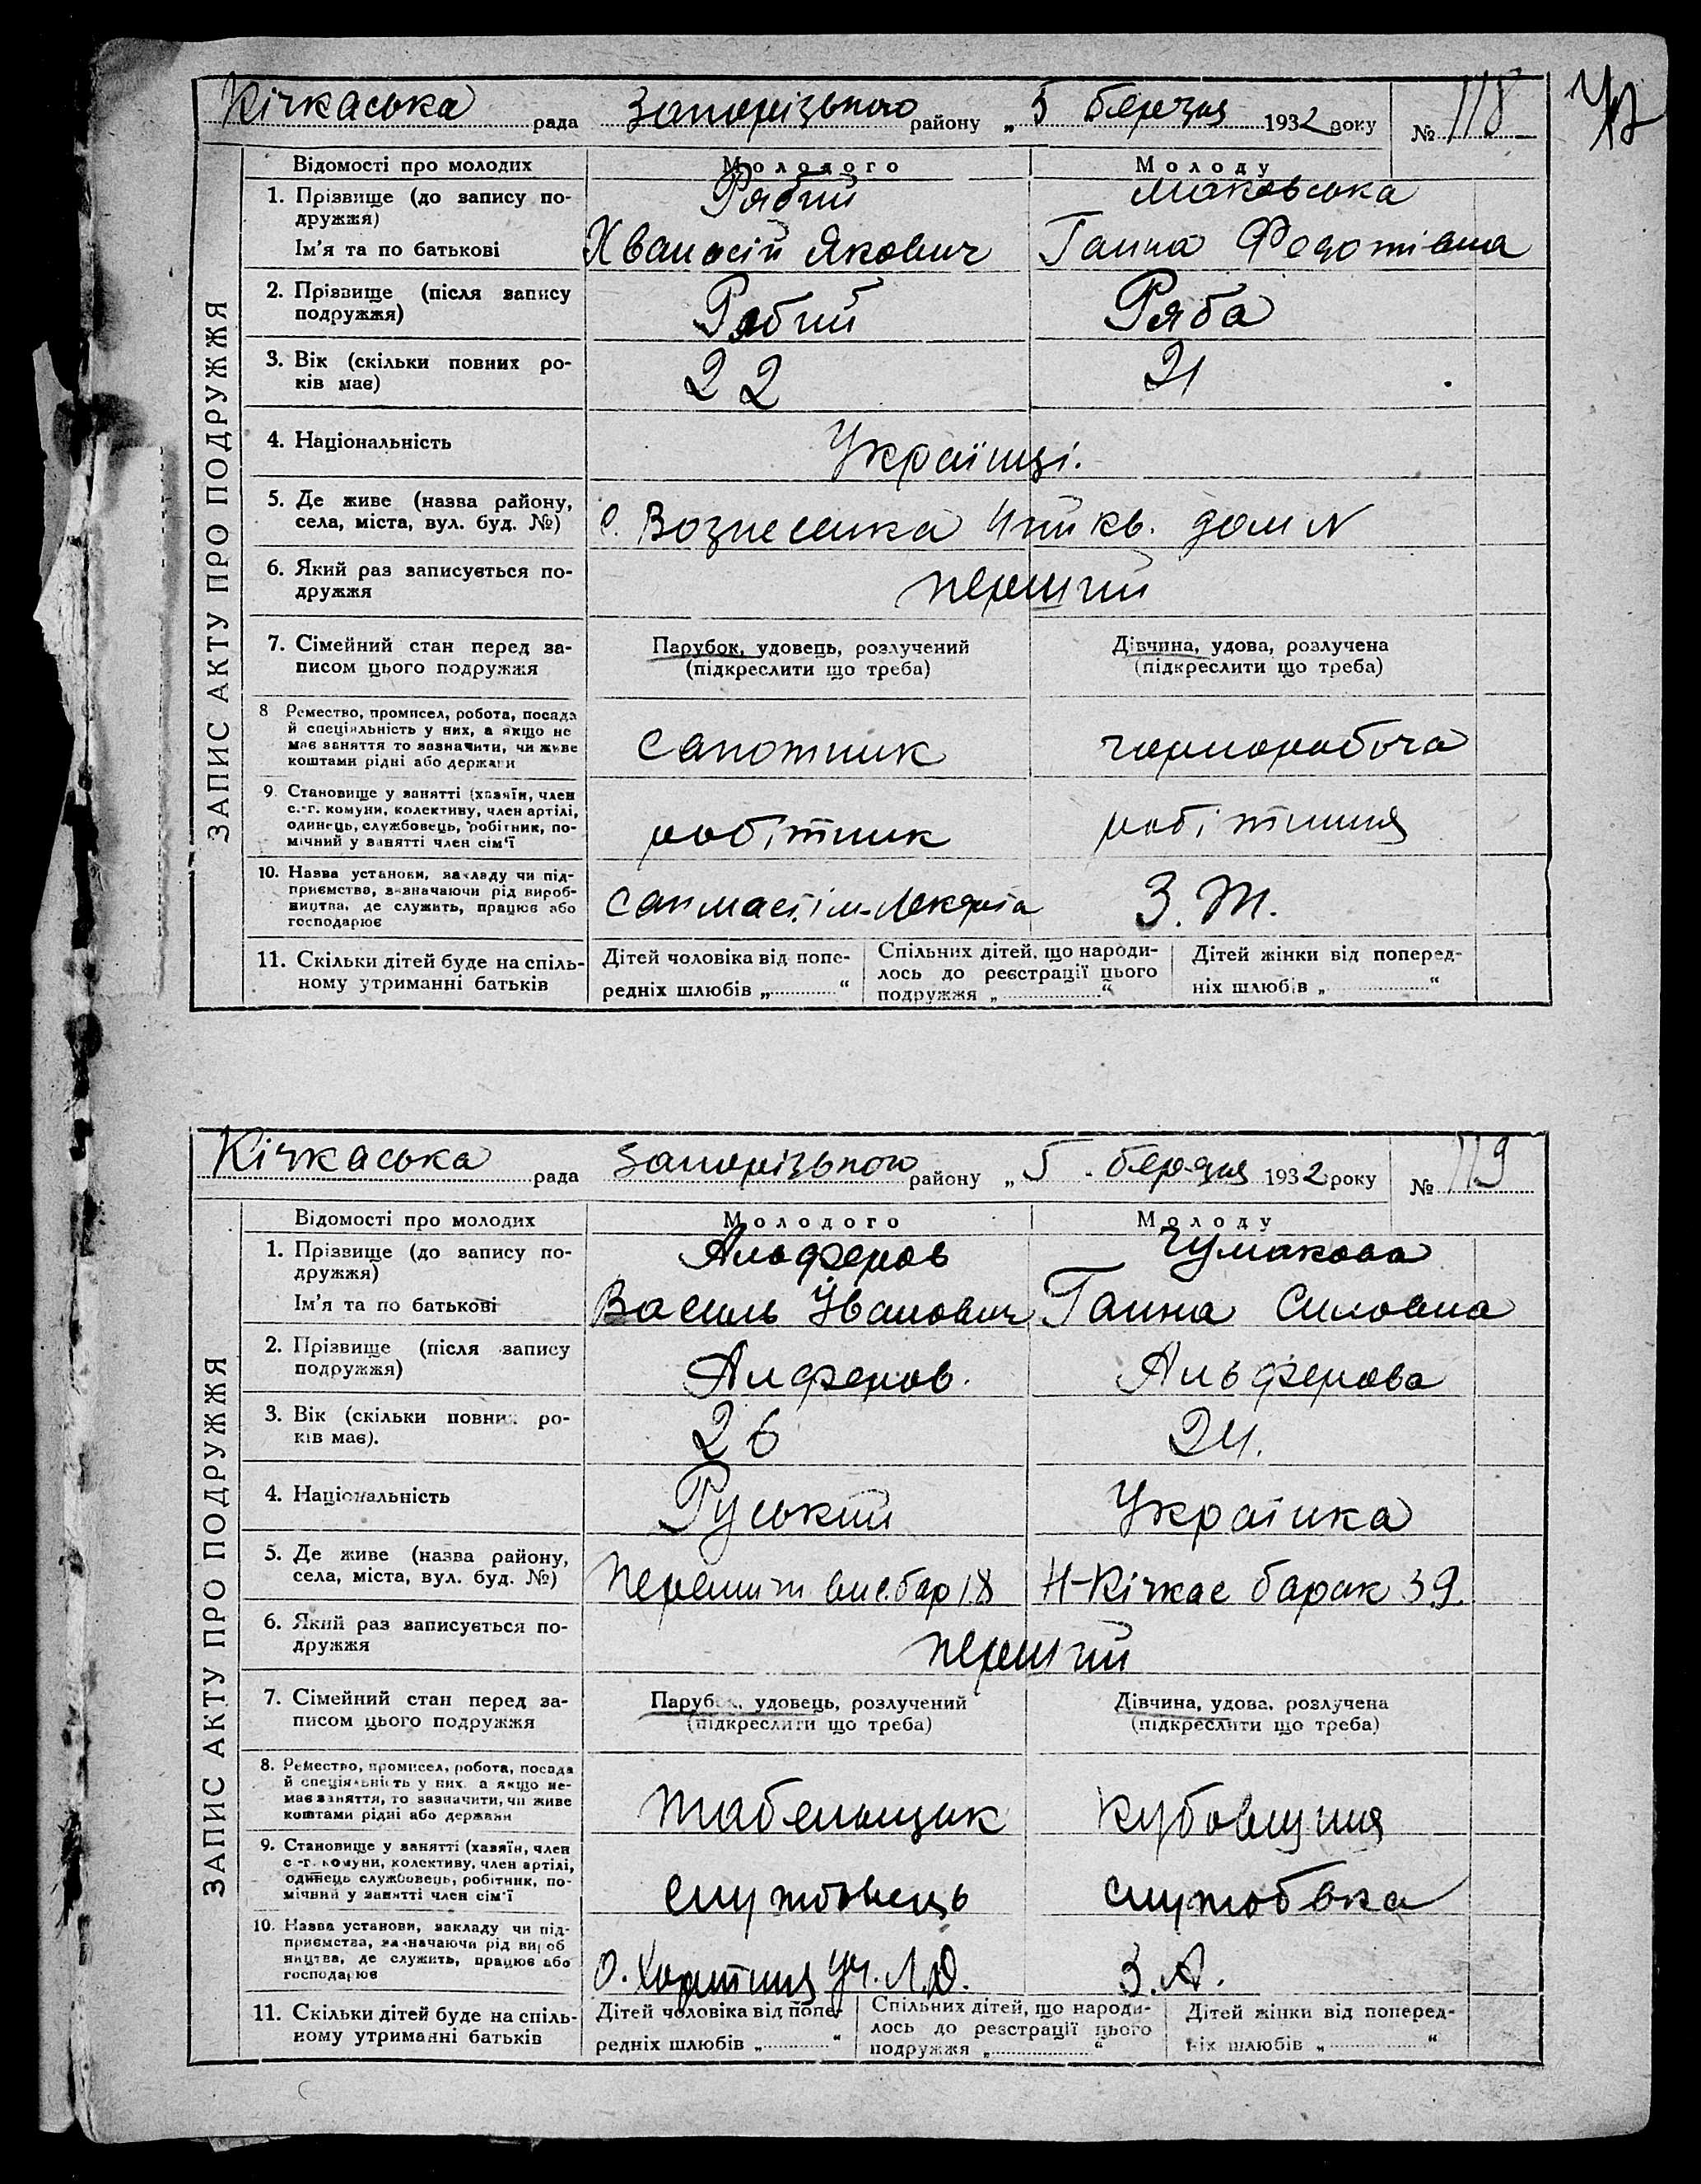 Кічкаська рада Запорізького району „ 5 березня 1932 року № 118
ЗАПИС АКТУ ПРО ПОДРУЖЖЯ
Відомості про молодих Молодого Молоду
1. Прізвище (до запису по- Рябий Маковська
дружжя)
Ім'я та по батькові Хванасій Якович Ганна Федотівна
2. Прізвище (після запису Рябий Ряба
подружжя)
3. Вік (скільки повних ро- 22 21
ків має)
4. Національність Українці.
5. Де живе (назва району,
села, міста, вул. буд. №) с. Вознесенка 4тий кв. дом N
6. Який раз записується по- перший
дружжя
7. Сімейний стан перед за- Парубок, удовець, розлучений Дівчина, удова, розлучена
писом цього подружжя (підкреслити що треба) (підкреслити що треба)
8 Ремество, промисел, робота, посада
й спеціяльність у них, а якщо не
має заняття то зазначити, чи живе сапожник чорноробоча
коштами рідні або держави
9. Становище у занятті (хазяїн, член
с.-г. комуни, колективу, член артілі,
одинець, службовець, робітник, по- робітник робітниця
мічний у занятті член сім'ї
10. Назва установи, закладу чи під-
приємства, зазначаючи рід вироб-
ництва, де служить, працює або сапмаст. ім. З. Т.
господарює
11. Скільки дітей буде на спіль- Дітей чоловіка від попе- Спільних дітей, що народи- Дітей жінки від поперед-
ному утриманні батьків редніх шлюбів „ “ лось до реєстрації цього подружжя „ “ ніх шлюбів „ “
Кічкаська рада Запорізького району „ 5 березня 1932 року № 119
ЗАПИС АКТУ ПРО ПОДРУЖЖЯ
Відомості про молодих Молодого Молоду
1. Прізвище (до запису по- Альферов Чумакова
дружжя)
Ім'я та по батькові Василь Іванович Ганна Силовна
2. Прізвище (після запису Алферов. Альферова
подружжя)
3. Вік (скільки повних ро- 26 24.
ків має).
4. Національність Руський Українка
5. Де живе (назва району,
села, міста, вул. буд. №) бар 18 Н-Кічкас барак 39.
6. Який раз записується по- перший
дружжя
7. Сімейний стан перед за- Парубок, удовець, розлучений Дівчина, удова, розлучена
писом цього подружжя (підкреслити що треба) (підкреслити що треба)
8. Ремество, промисел, робота, посада
й спеціяльність у них, а якщо не-
має заняття, то зазначити, чи живе табельщик кубовщиця
коштами рідні або держави
9. Становище у занятті (хазяїн, член
с.-г. комуни, колективу, член артілі,
одинець службовець, робітник, по- службовець службовка
мічний у занятті член сім'ї
10. Назва установи, закладу чи під-
приємства, зазначаючи рід вироб
ництва, де служить, працює або о. Хортиця уч. З. А.
господарює
11. Скільки дітей буде на спіль- Дітей чоловіка від попе- Спільних дітей, що народи- Дітей жінки від поперед-
ному утриманні батьків редніх шлюбів „ “ лось до реєстрації цього подружжя „ “ ніх шлюбів „ “